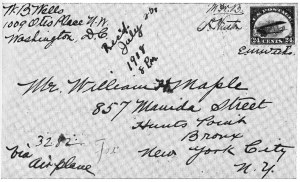 W B Wells
1009 Otis Place N.W.
Washington, D.C.
Rec'd
July
1918
POSTAGE
24 CENTS 24
Mr. William H Maple
857 Manida Street
Hunts Point
Bronx
New York City
N.Y.
Via
Air plane